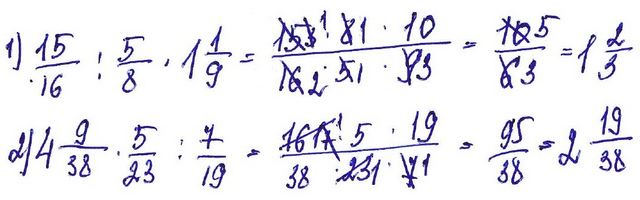 1) 15/16 : 5/8 · 1 1/9 = 15 3 1 · 8 1 · 10 / 16 2 · 5 1 · 9 3 = 10 5 / 6 3 = 1 2/3
2) 4 9/38 · 5/23 : 7/19 = 161 7 1 · 5 · 19 / 38 · 23 1 · 7 1 = 95/38 = 2 19/38